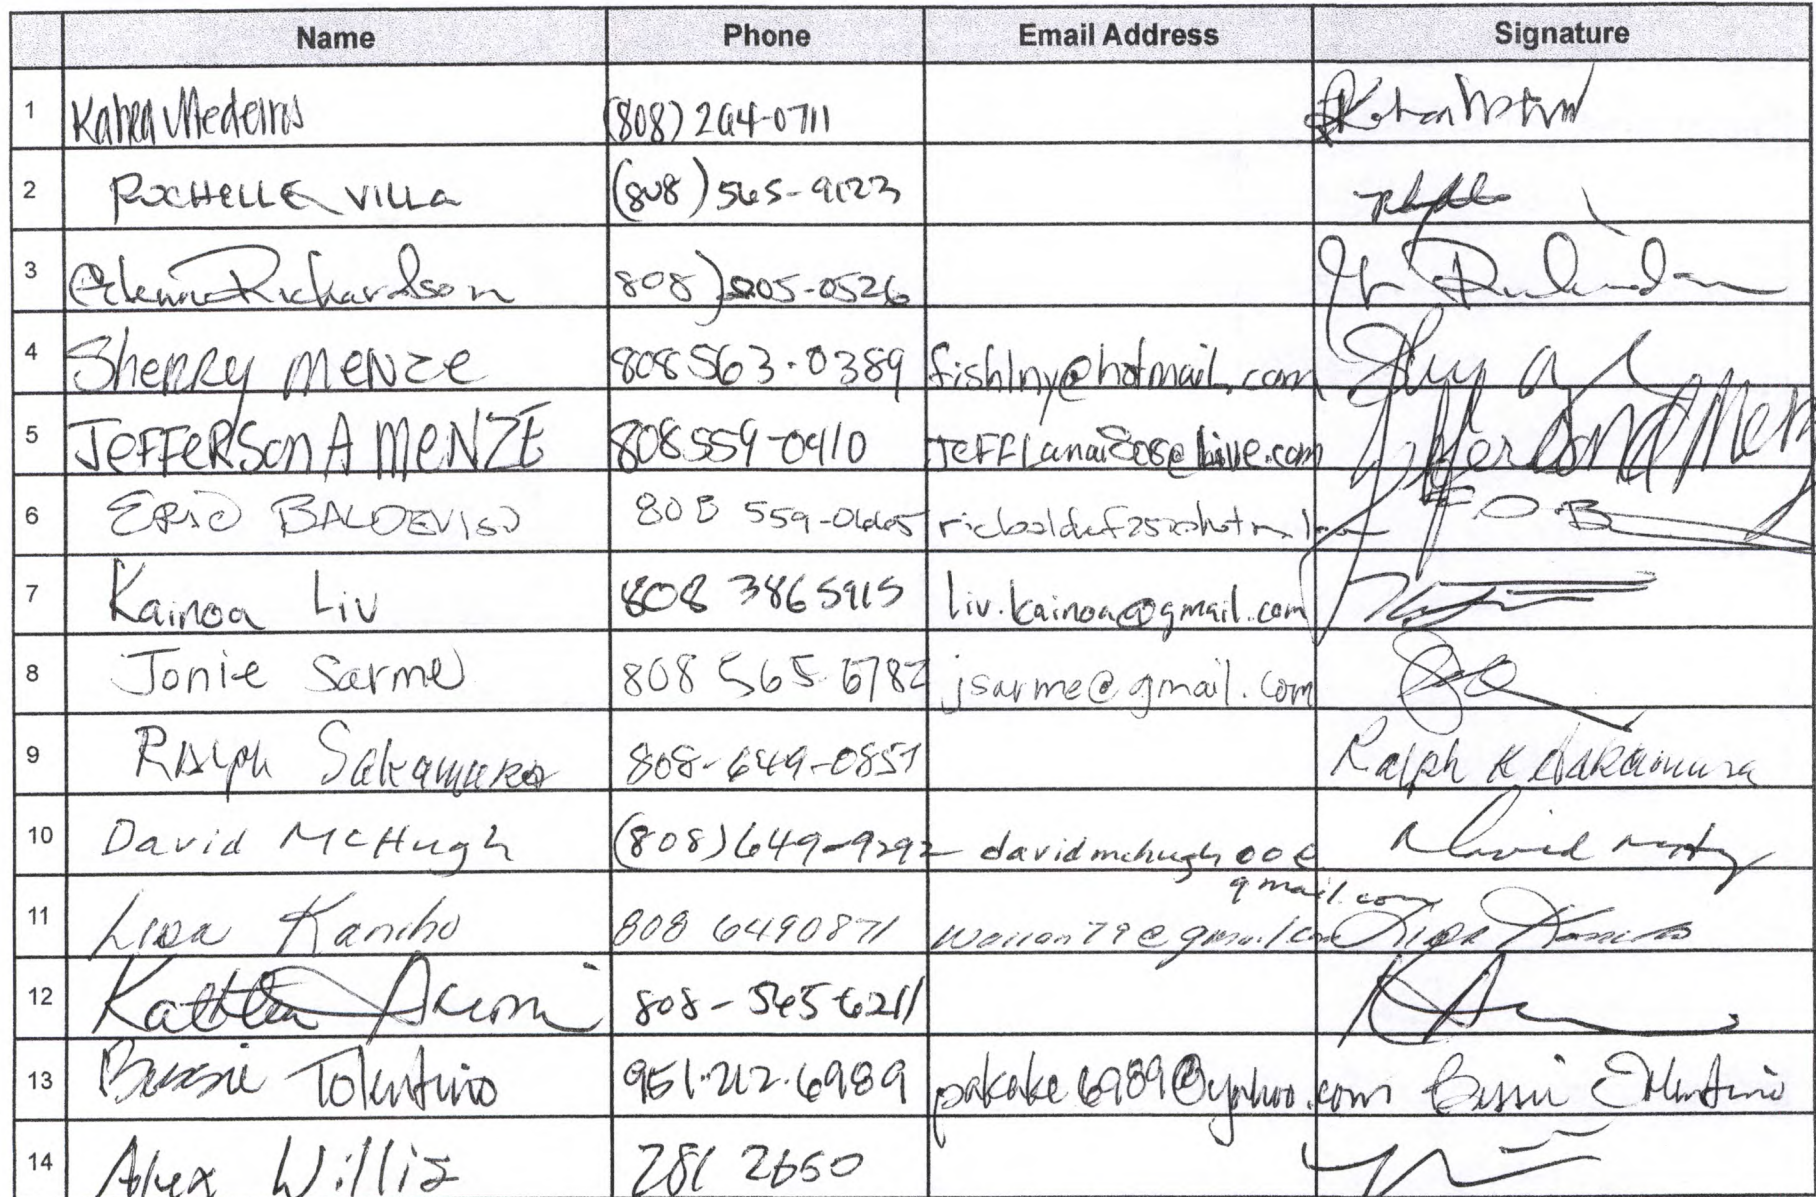 Name Phone Email Address Signature
1 Kahea Medeiros (808) 264-0711
2 ROCHELLE VILLA (808) 565-9123
3 Glenn Richardson 808) 205-0526
4 Sherry MENZE 808 563-0389 fishlny@hotmail.com
5 JEFFERSON A MENZE 808 559-0910 JEFFLanai808@live.com
6 ERIC BALDEVISO 808 559-0665
7 Kainoa Liv 808 3865915 liv.kainoa@gmail.com
8 Jonie Sarme 808 565 6782 jsarme@gmail.com
9 Ralph Sakamura 808-649-0851 Ralph K Sakamura
10 David McHugh (808) 649-9292 davidmchugh00@
gmail.com
11 Lisa Kaniho 808 6490871 Lisa Kaniho
12 808-565 6211
13 Bessie Tolentino 951.212.6989 pakake6989@yahoo.com Bessie Tolentino
14 Alex Willis 281 2650